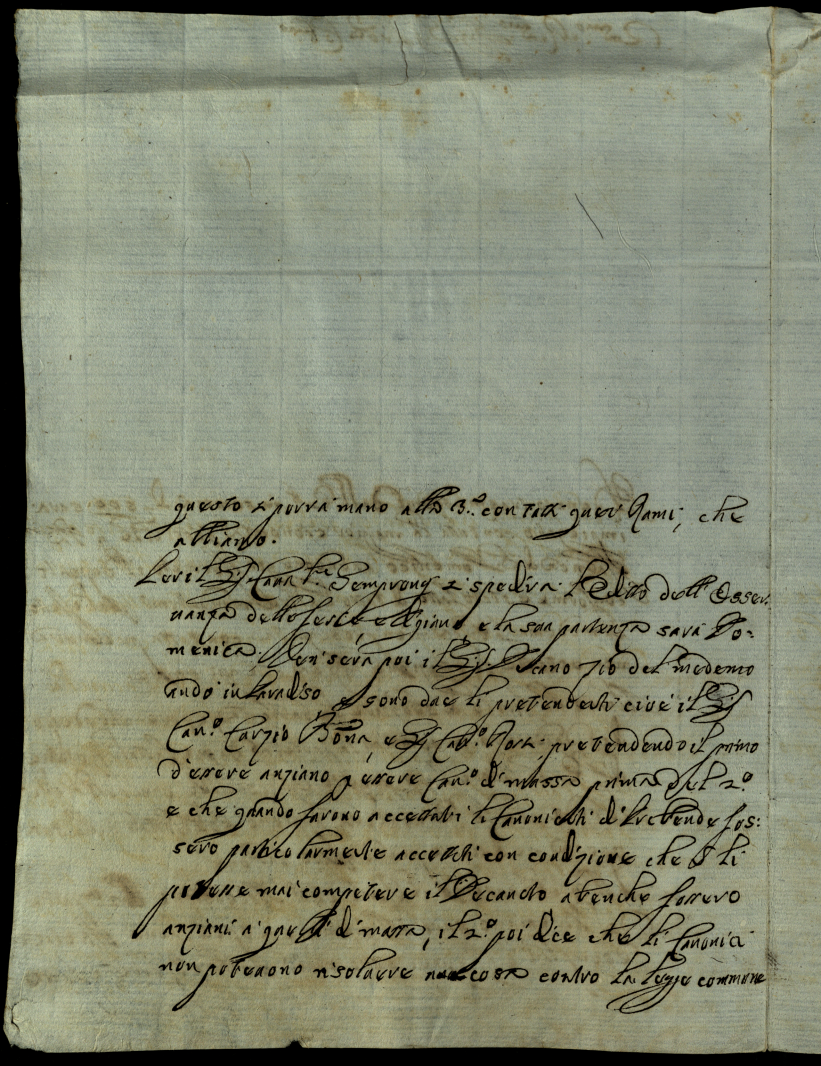 questo si porrà mano alla 3.ª con tatti quei Rami, che
abbiamo.
Ieri il Sig. Sempronij si spediva l'Editto dell'Osser-
vanza delle feste e la sua partenza sarà Do-
menica. Ieri sera poi il Sig. Decano zio del medemo
andò in Paradiso, e sono due li pretendenti cioè il Sig
Can.º Curzio Bona, e Sig Can.º pretendendo il primo
d'essere anziano p essere Can.º di massa prima del 2.º
e che quando furono accettati li Canonicati di Prebende fos:
sero particolarmente accettati con condizione che li
potesse mai competere il Decanato abenche fossero
anziani a quelli di massa, il 2.º poi dice che li Canonici
non potevono risolvere cosa contro la legge commune